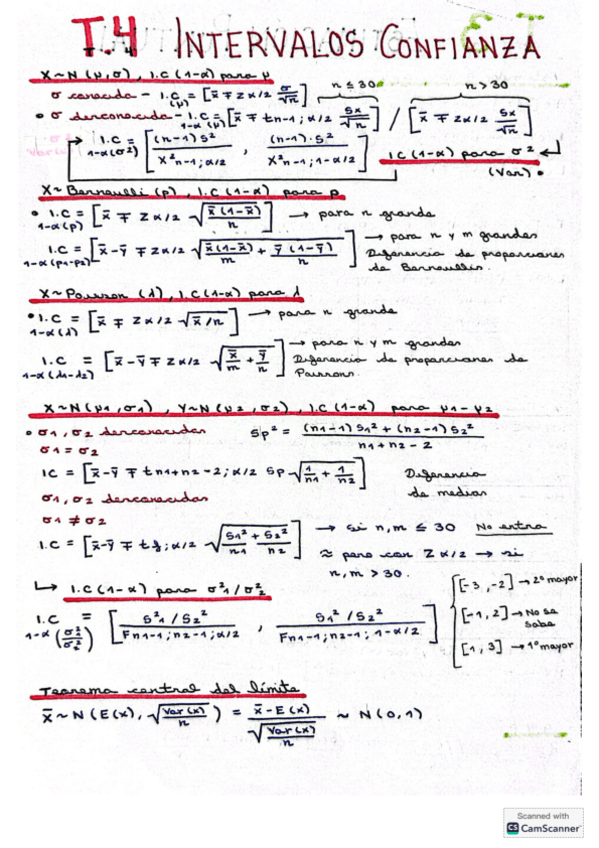 T.4 INTERVALOS CONFIANZA
X~N(μ,σ), I.C(1-α) para μ
n ≤ 30 n > 30
σ conocida - I.C(μ) = [x̄ ∓ Zα/2 σ/√n]
• σ desconocida - I.C 1-α(μ) = [x̄ ∓ tn-1; α/2 Sx/√n] / [x̄ ∓ Zα/2 Sx/√n]
→ I.C 1-α(σ²) = [(n-1)S²/X²n-1; α/2 , (n-1)·S²/X²n-1; 1-α/2] I.C(1-α) para σ²
(Var) •
X~Bernoulli(p), I.C(1-α) para p
• I.C 1-α(p) = [x̄ ∓ Zα/2 √(x̄(1-x̄)/n)] → para n grande
I.C 1-α(p1-p2) = [x̄-ȳ ∓ Zα/2 √(x̄(1-x̄)/m + ȳ(1-ȳ)/n)] → para n y m grandes
Diferencia de proporciones
de Bernoullis.
X~Poisson(λ), I.C(1-α) para λ
• I.C 1-α(λ) = [x̄ ∓ Zα/2 √x̄/n] → para n grande
I.C 1-α(λ1-λ2) = [x̄-ȳ ∓ Zα/2 √(x̄/m + ȳ/n)] → para n y m grandes
Diferencia de proporciones de
Poissons.
X~N(μ1,σ1), Y~N(μ2,σ2), I.C(1-α) para μ1-μ2
• σ1, σ2 desconocidas Sp² = (n1-1)S1² + (n2-1)S2² / n1+n2-2
σ1 = σ2
IC = [x̄-ȳ ∓ tn1+n2-2; α/2 Sp √(1/n1 + 1/n2)] Diferencia
de medias
σ1, σ2 desconocidas
σ1 ≠ σ2
I.C = [x̄-ȳ ∓ tf; α/2 √(S1²/n1 + S2²/n2)] → si n,m ≤ 30 No entra
≈ pero con Zα/2 → si
n,m > 30.
↳ I.C(1-α) para σ²1/σ²2
[-3,-2] → 2º mayor
[-1,2] → No se
sabe
[1,3] → 1º mayor
I.C 1-α(σ²1/σ²2) = [S²1/S2² / Fn1-1; n2-1; α/2 , S1²/S2² / Fn1-1; n2-1; 1-α/2]
Teorema central del límite
x̄~N(E(x), √(Var(x)/n)) = x̄-E(x) / √(Var(x)/n) ~ N(0,1)
Scanned with
CS CamScanner